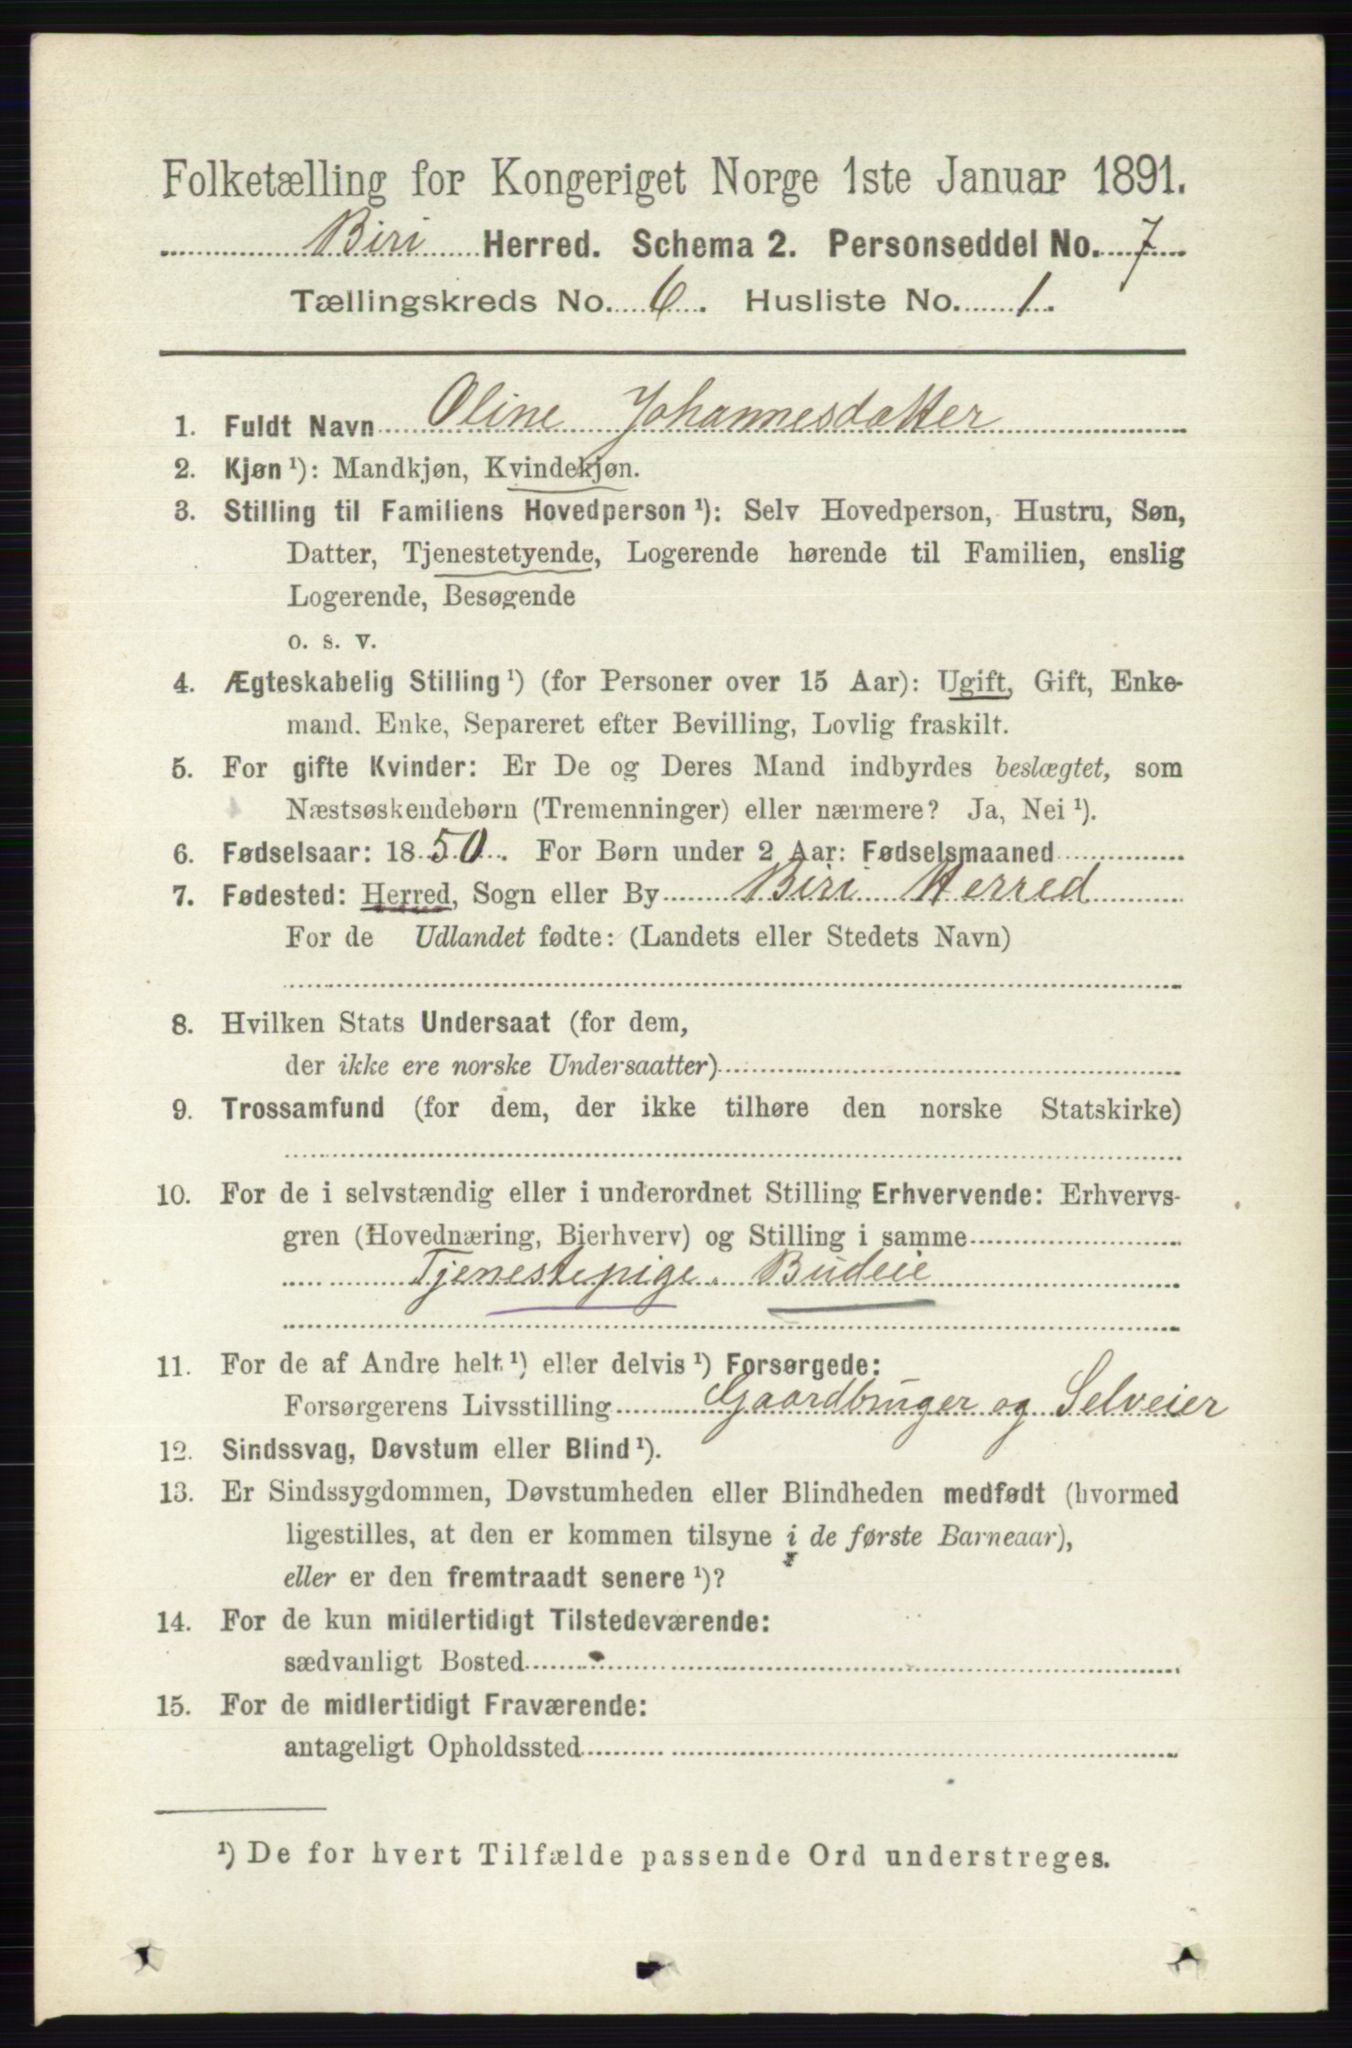 Folketælling for Kongeriget Norge 1ste Januar 1891.
Biri Herred. Schema 2. Personseddel No. 7
Tællingskreds No. 6. Husliste No. 1.
1. Fuldt Navn Oline Johannesdatter
2. Kjøn ¹): Mandkjøn, Kvindekjøn.
3. Stilling til Familiens Hovedperson ¹): Selv Hovedperson, Hustru, Søn,
Datter, Tjenestetyende, Logerende hørende til Familien, enslig
Logerende, Besøgende
o. s. v.
4. Ægteskabelig Stilling ¹) (for Personer over 15 Aar): Ugift, Gift, Enke-
mand. Enke, Separeret efter Bevilling, Lovlig fraskilt.
5. For gifte Kvinder: Er De og Deres Mand indbyrdes beslægtet, som
Næstsøskendebørn (Tremenninger) eller nærmere? Ja, Nei ¹).
6. Fødselsaar: 1850. For Børn under 2 Aar: Fødselsmaaned
7. Fødested: Herred, Sogn eller By Biri Herred
For de Udlandet fødte: (Landets eller Stedets Navn)
8. Hvilken Stats Undersaat (for dem,
der ikke ere norske Undersaatter)
9. Trossamfund (for dem, der ikke tilhøre den norske Statskirke)
10. For de i selvstændig eller i underordnet Stilling Erhvervende: Erhvervs-
gren (Hovednæring, Bierhverv) og Stilling i samme
Tjenestepige. Budeie
11. For de af Andre helt ¹) eller delvis ¹) Forsørgede:
Forsørgerens Livsstilling Gaardbruger og Selveier
12. Sindssvag, Døvstum eller Blind ¹).
13. Er Sindssygdommen, Døvstumheden eller Blindheden medfødt (hvormed
ligestilles, at den er kommen tilsyne i de første Barneaar),
eller er den fremtraadt senere ¹)?
14. For de kun midlertidigt Tilstedeværende:
sædvanligt Bosted
15. For de midlertidigt Fraværende:
antageligt Opholdssted
¹) De for hvert Tilfælde passende Ord understreges.